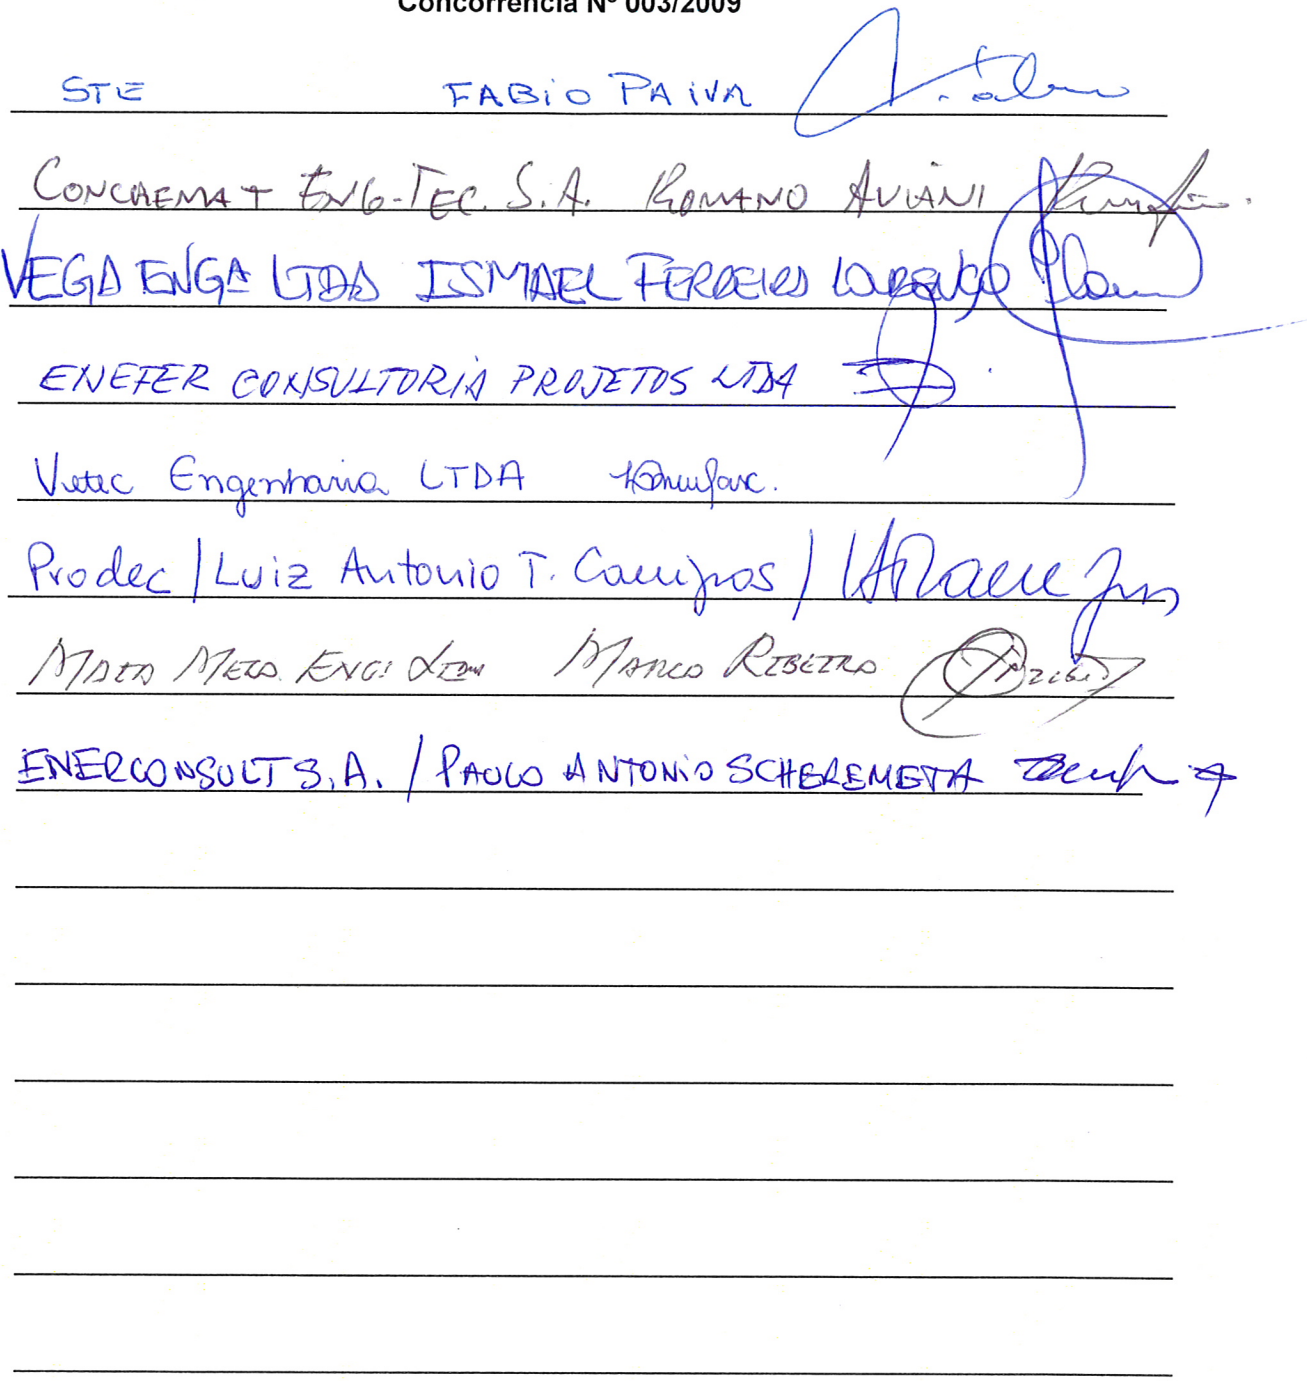 Concorrência Nº 003/2009
STE FABiO PAiVA
CONCREMAT ENG-TEC. S.A. ROMANO AVIANI
VEGA ENGª LTDA ISMAEL FERREIRA LOURENÇO
ENEFER CONSULTORIA PROJETOS LTDA
Vetec Engenharia LTDA
Prodec / Luiz Antonio T. Campos /
MARCO RIBEIRO
ENERCONSULT S.A. / PAULO ANTONiO SCHEREMETA